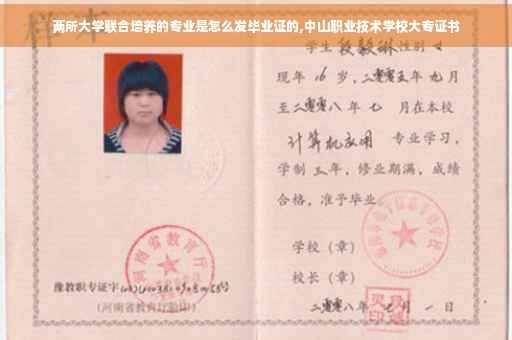 两所大学联合培养的专业是怎么发毕业证的,中山职业技术学校大专证书
学生 性别 女
现年 16 岁,二零零五年 九月
至二零零八年 七 月在本校
计算机应用 专业学习,
学制 三 年,修业期满,成绩
合格,准予毕业
学校(章)
校长(章)
二零零八年 七 月 一 日
河南省教育厅
豫教职专证字
(河南省教育厅验印)